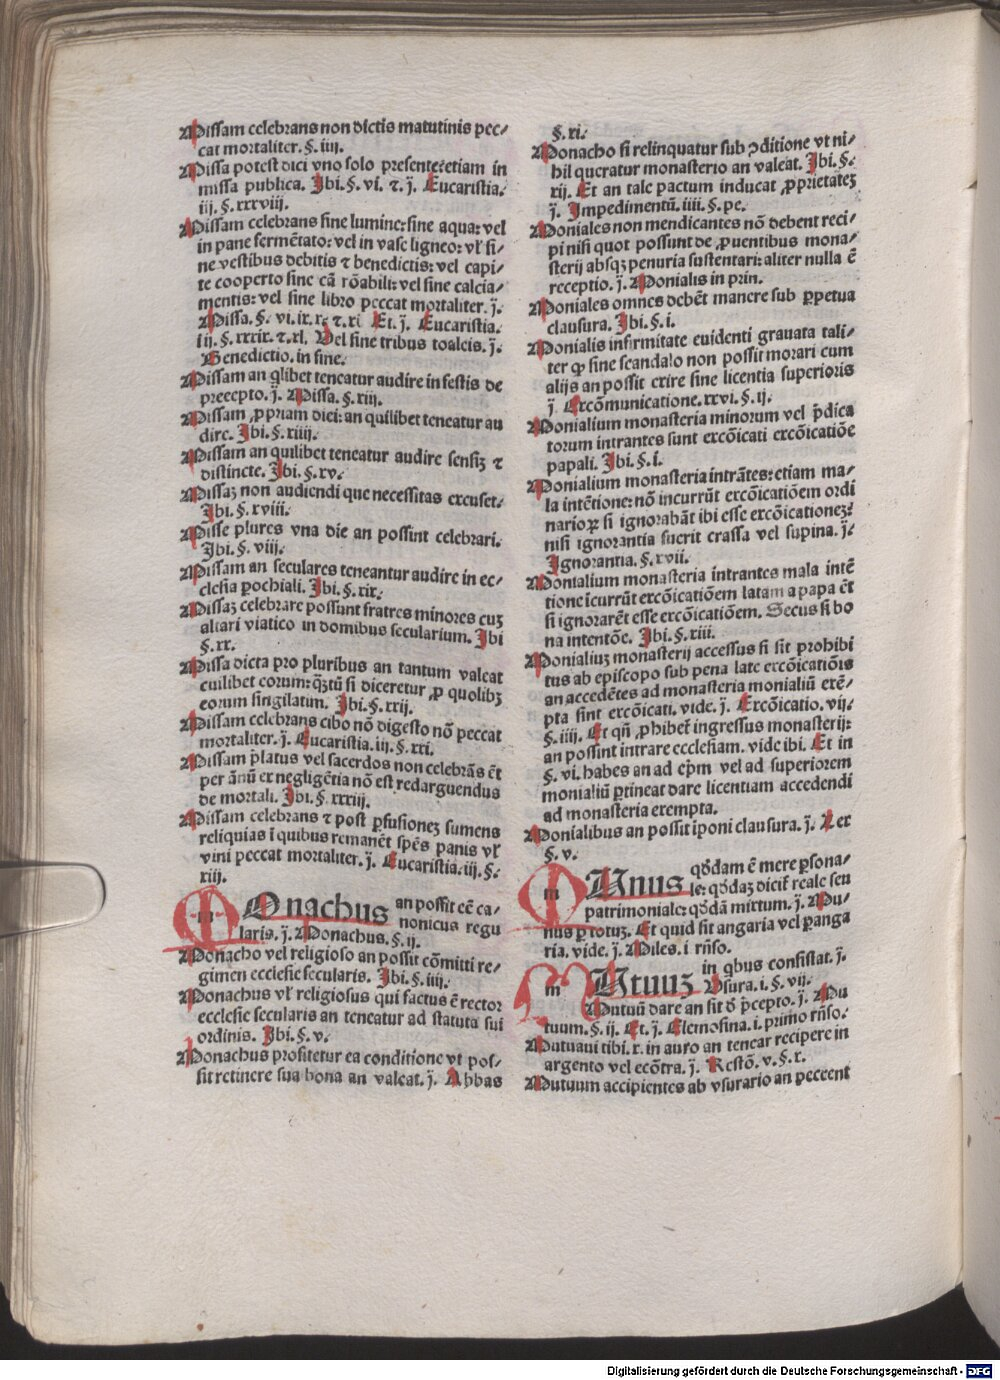 Missam celebrans non dictis matutinis pec⸗
cat mortaliter. §. iiij.
Missa potest dici vno solo presente: etiam in
missa publica. Ibi. §. vi. ⁊. j̄. Eucaristia.
iij. §. xxxviij.
Missam celebrans sine lumine: sine aqua: vel
in pane fermētato: vel in vase ligneo: vl' si⸗
ne vestibus debitis ⁊ benedictis: vel capi⸗
te cooperto sine cā rōabili: vel sine calcia⸗
mentis: vel sine libro peccat mortaliter. j̄.
Missa. §. vi. ix. x. ⁊. xi Et. j̄. Eucaristia.
iij. §. xxxix. ⁊. xl. Vel sine tribus toaleis. j̄.
Benedictio. in fine.
Missam an qlibet teneatur audire in festis de
precepto. j̄. Missa. §. xiij.
Missam ꝓpriam diei: an quilibet teneatur au
dire. Ibi. §. xiiij.
Missam an quilibet teneatur audire sensiꝫ ⁊
distincte. Ibi. §. xv.
Missaꝫ non audiendi que necessitas excuset.
Ibi. §. xviii.
Misse plures vna die an possint celebrari.
Ibi. §. viii.
Missam an seculares teneantur audire in ec⸗
clesia ꝑochiali. Ibi. §. xix.
Missaꝫ celebrare possunt fratres minores cuꝫ
altari viatico in domibus secularium. Ibi
§. xx.
Missa dicta pro pluribus an tantum valeat
cuilibet eorum: qꝫtū si diceretur ꝓ quolibꝫ
eorum singilatim. Ibi. §. xxij.
Missam celebrans cibo nō digesto nō peccat
mortaliter. j̄. Eucaristia. iij. §. xxi.
Missam p̄latus vel sacerdos non celebrās et̄
per ānū ex negligētia nō est redarguendus
de mortali. Ibi. §. xxxiij.
Missam celebrans ⁊ post ꝑfusionez sumens
reliquias ī quibus remanēt spēs panis vl'
vini peccat mortaliter. j̄. Eucaristia. iij. §.
xiij.
m MOnachus an possit eē ca⸗
nonicus regu
laris. j̄. Monachus. §. ij.
Monacho vel religioso an possit cōmitti re⸗
gimen ecclesie secularis. Ibi. §. iiij.
Monachus vl' religiosus qui factus ē rector
ecclesie secularis an teneatur ad statuta sui
ordinis. Ibi. §. v.
Monachus profitetur ea conditione vt pos⸗
sit retinere sua bona an valeat. j̄. Abbas
§. xi.
Monacho si relinquatur sub ꝯditione vt ni⸗
hil queratur monasterio an valeat. Ibi. §.
xij. Et an tale pactum inducat ꝓprietatez
j̄. Impedimentū. iiii. §. pe.
Moniales non mendicantes nō debent reci⸗
pi nisi quot possunt de ꝓuentibus mona⸗
sterij absqꝫ penuria sustentari: aliter nulla ē
receptio. j̄. Monialis in prin.
Moniales omnes debēt manere sub ꝑpetua
clausura. Ibi. §. i.
Monialis infirmitate euidenti grauata tali⸗
ter qꝙ sine scandalo non possit morari cum
alijs an possit exire sine licentia superioris
j̄ Excōmunicatione. xxvi. §. ij.
Monialium monasteria minorum vel p̄dica
torum intrantes sunt excōicati excōicatiōe
papali. Ibi. §. i.
Monialium monasteria intrātes: etiam ma⸗
la intētione: nō incurrūt excōicatiōem ordi
narioꝝ si ignorabāt ibi esse excōicationez:
nisi ignorantia fuerit crassa vel supina. j̄.
Ignorantia. §. xvii.
Monialium monasteria intrantes mala intē
tione īcurrūt excōicatiōem latam a papa et̄
si ignorarēt esse excōicatiōem. Secus si bo
na intentōe. Ibi. §. xiii.
Monialiuꝫ monasterij accessus si sit prohibi
tus ab episcopo sub pena late excōicatiōis
an accedētes ad monasteria monialiū exē⸗
pta sint excōicati. vide. j̄. Excōicatio. vij.
§. iiij. Et qn̄ ꝓhibet̄ ingressus monasterij:
an possint intrare ecclesiam. vide ibi. Et in
§. vi. habes an ad ep̄m vel ad superiorem
monialiū ꝑtineat dare licentiam accedendi
ad monasteria exempta.
Monialibus an possit īponi clausura. j̄. Lex
§. v.
m MUnus qōdam ē mere ꝑsona⸗
le: qōdaꝫ dicit̄ reale seu
patrimoniale: qōdā mixtum. j̄. Mu⸗
nus ꝑ totuꝫ. Et quid sit angaria vel ꝑanga
ria. vide. j̄. Miles. i rn̄so.
m MUtuuꝫ in qbus consistat. j̄.
Vsura. i. §. vij.
Mutuū dare an sit ō p̄cepto. j̄. Mu
tuum. §. ij. Et. j̄. Elemosina. i. primo rn̄so.
Mutuaui tibi. x. in auro an tenear recipere in
argento vel ecōtra. j̄. Restō. v. §. x.
Mutuum accipientes ab vsurario an peccent
Digitalisierung gefördert durch die Deutsche Forschungsgemeinschaft - DFG